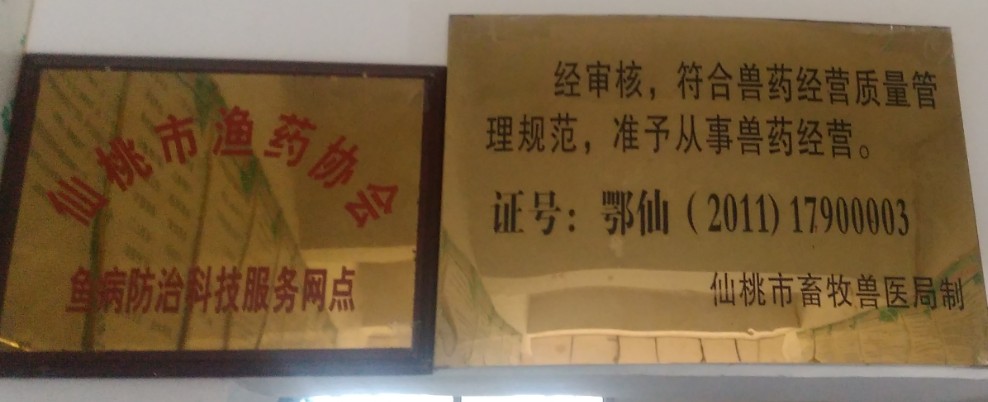 仙桃市渔药协会
鱼病防治科技服务网点
经审核，符合兽药经营质量管
理规范，准予从事兽药经营。
证号：鄂仙（2011）17900003
仙桃市畜牧兽医局制